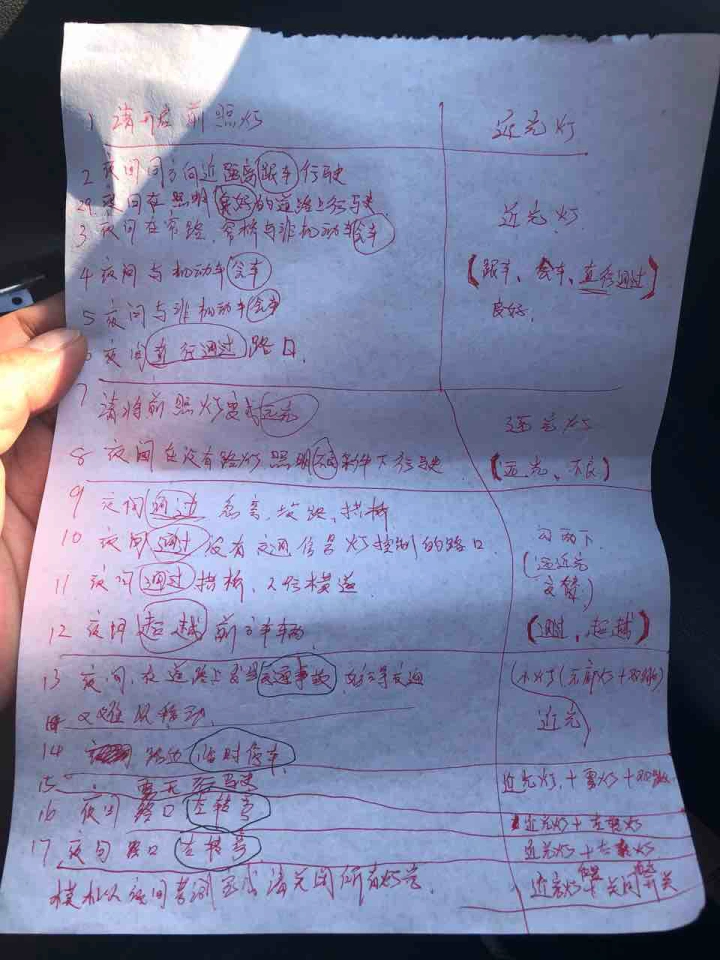 1 请开启前照灯 近光灯
2 夜间同方向近距离跟车行驶
夜间在照明良好的道路上行驶 近光灯
3 夜间在窄路、窄桥与非机动车会车
4 夜间与机动车会车 (跟车、会车、直行通过)
5 夜间与非机动车会车 良好.
6 夜间直行通过路口.
7 请将前照灯变成远光 远光灯
8 夜间在没有路灯照明不良条件下行驶. (远光、不良)
9 夜间通过急弯、坡路、拱桥
10 夜间通过没有交通信号灯控制的路口 闪两下
11 夜间通过拱桥、人行横道 (远近光交替)
12 夜间超越前方车辆 (通过,超越)
13 夜间,在道路上发生交通事故,妨碍交通
又难以移动.
14 路边临时停车
15 雾天行驶 近光灯+雾灯+
16 夜间路口左转弯 近光灯+左转灯
17 夜间路口左转弯 近光灯+右转灯
模拟夜间考试完成请关闭所有灯光.